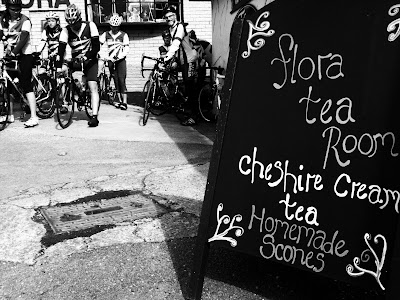 flora
tea
Room
Cheshire Cream
tea
Homemade
Scones
ORA